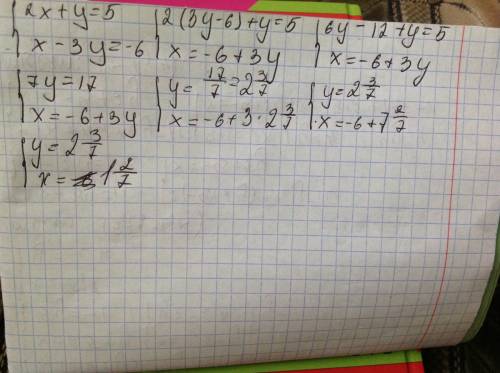 {2x+y=5 {2(3y-6)+y=5 {6y-12+y=5
x-3y=-6 x=-6+3y x=-6+3y
{7y=17 {y=17/7=2 3/7 {y=2 3/7
x=-6+3y x=-6+3·2 3/7 x=-6+7 2/7
{y=2 3/7
x=1 2/7